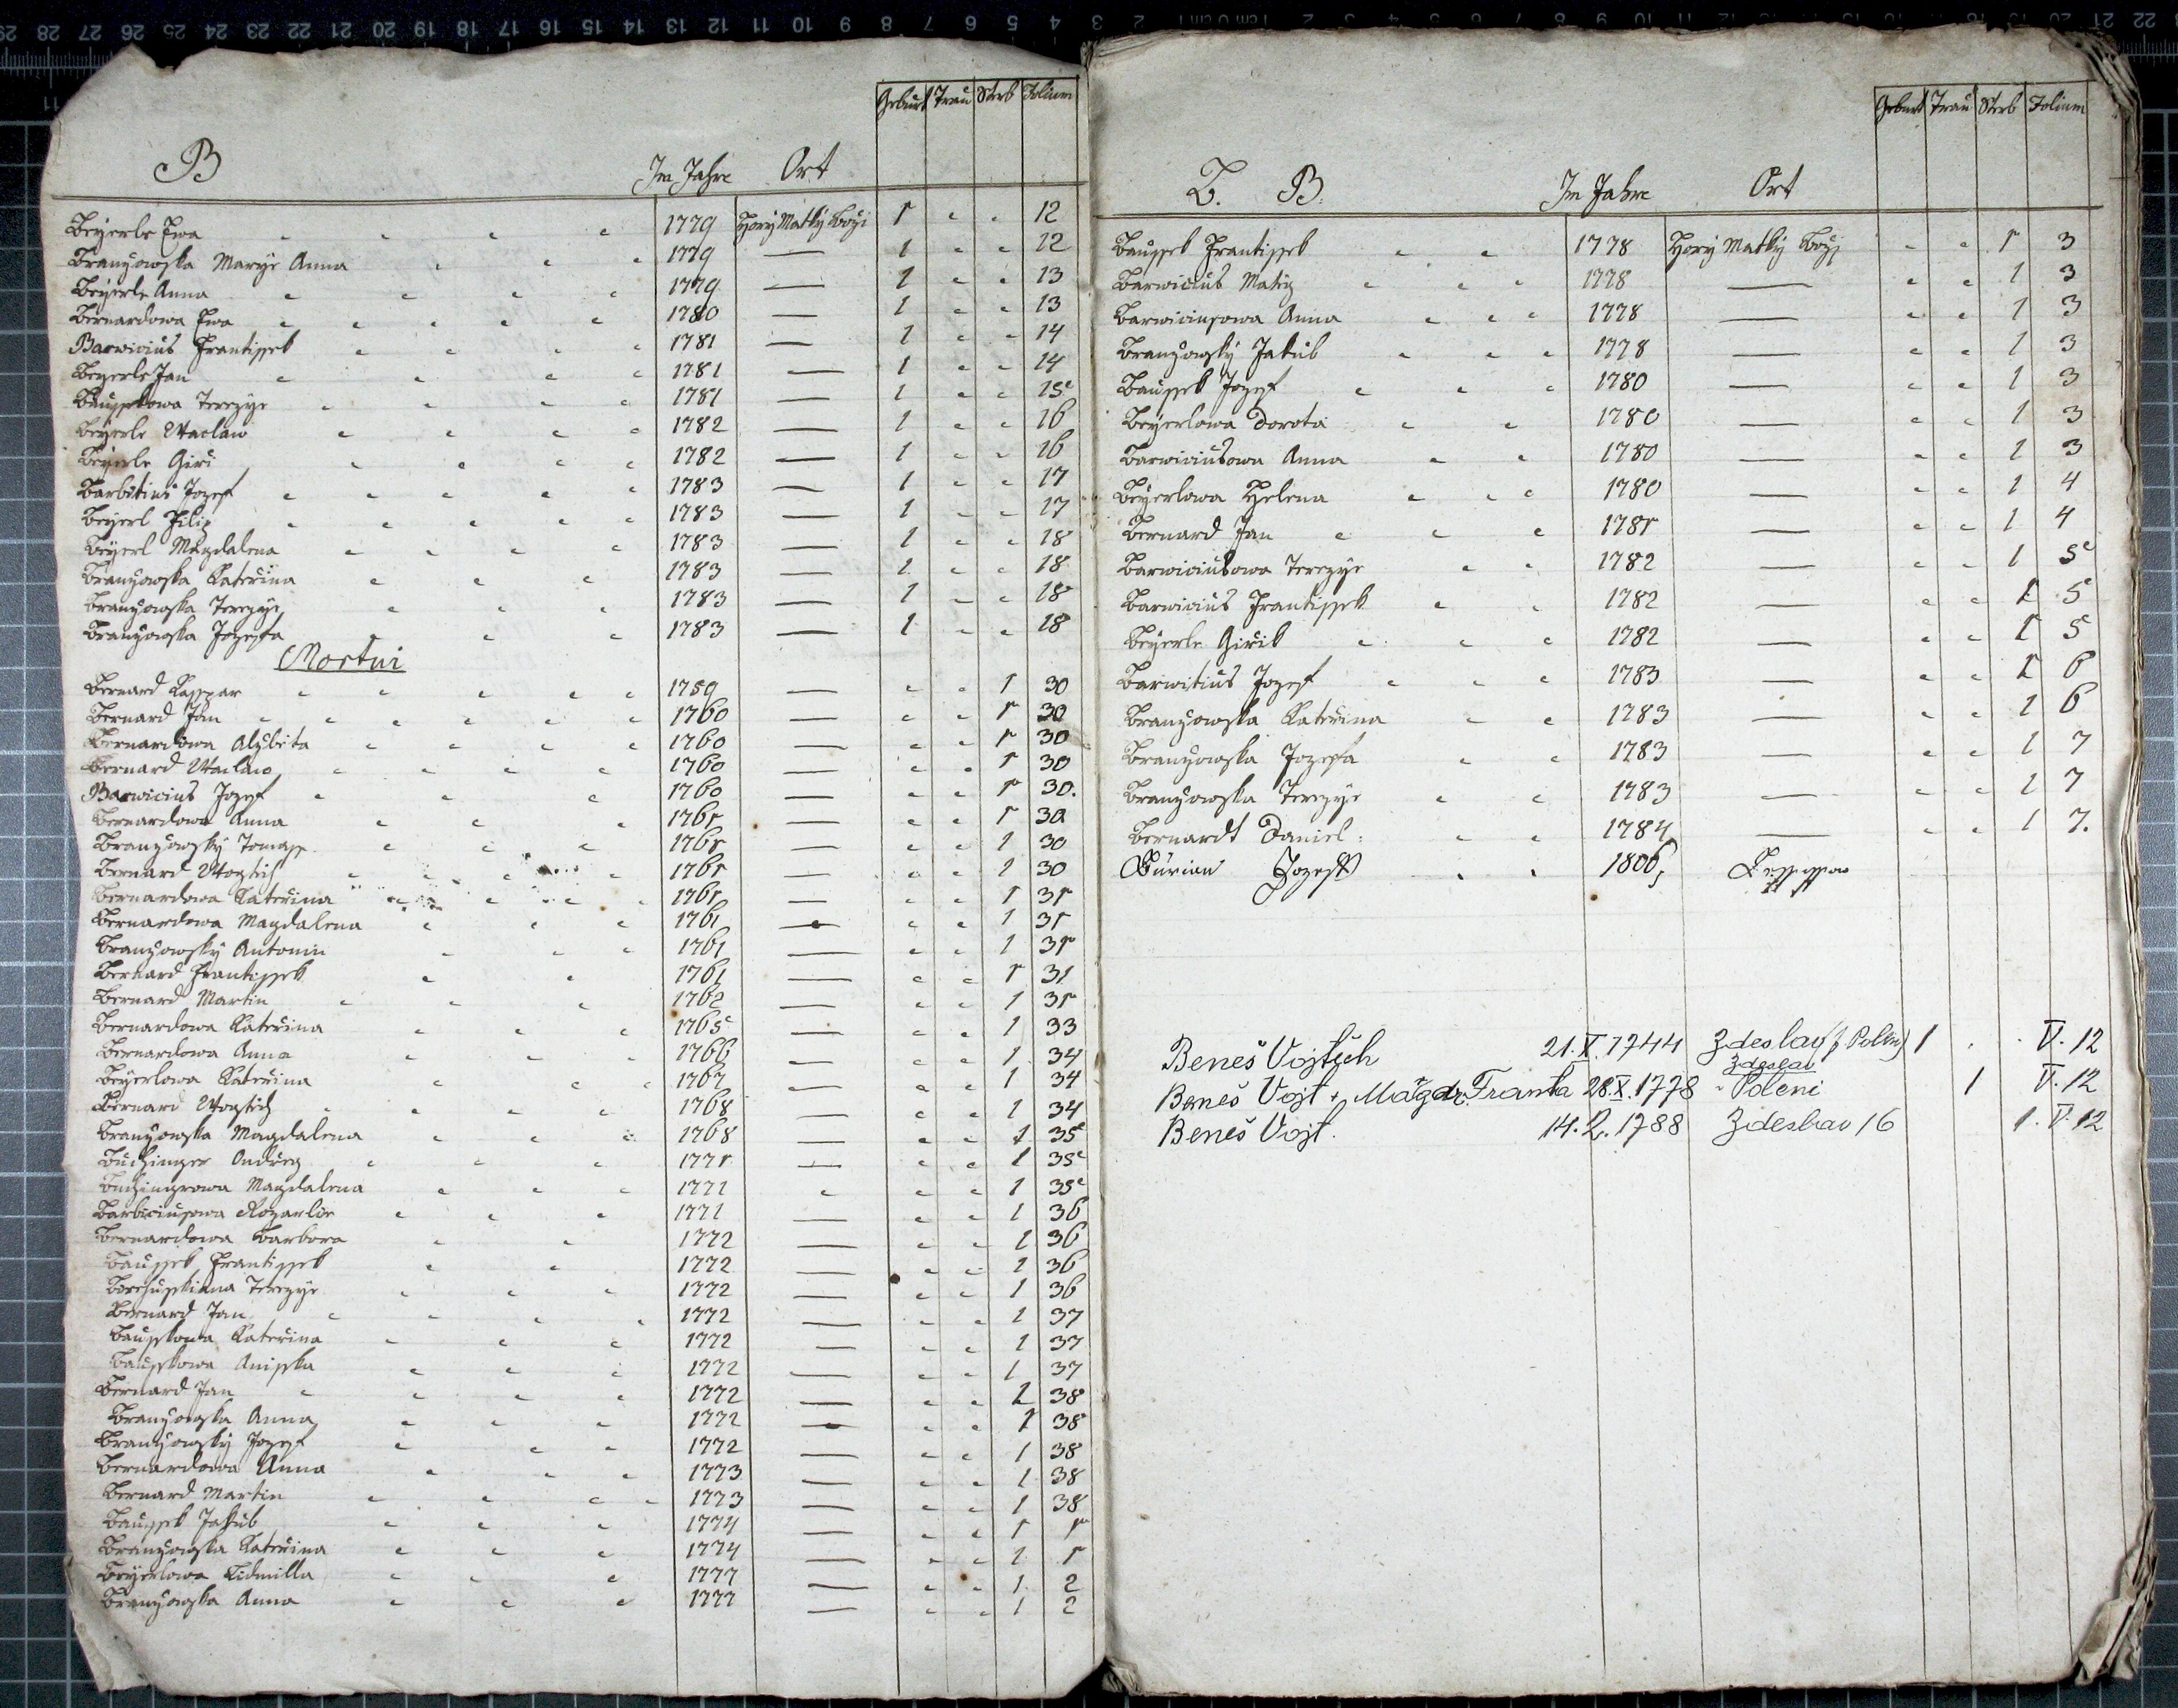 Geburt Trau Sterb Folium
B Im Jahre Ort
Beyerle Ewa 1779 Hory Matky Božj 1 12
Branžowska Marye Anna 1779 — 1 12
Beyerle Anna 1779 — 1 13
Bernardowa Ewa 1780 — 1 13
Barwicius Frantissek 1781 — 1 14
Beyerle Jan 1781 — 1 14
Bausskowa Terezye 1781 — 1 15
Beyerle Waclaw 1782 — 1 16
Beyerle Giri 1782 — 1 16
Barbitius Jozef 1783 — 1 17
Beyerl Filip 1783 — 1 17
Beyerl Magdalena 1783 — 1 18
Branžowska Katerina 1783 — 1 18
Branžowska Terezye 1783 — 1 18
Branžowska Jozefa 1783 — 1 18
Mortui
Bernard Kasspar 1759 — 1 30
Bernard Jan 1760 — 1 30
Bernardowa Alžbieta 1760 — 1 30
Bernard Waclaw 1760 — 1 30
Barwicius Jozef 1760 — 1 30.
Bernardowa Anna 1761 — 1 30
Branžowsky Tomass 1761 — 1 30
Bernard Wogtich 1761 — 1 30
Bernardowa Katerina 1761 — 1 31
Bernardowa Magdalena 1761 — 1 31
Branžowsky Antonin 1761 — 1 31
Bernard Frantissek 1761 — 1 31
Bernard Martin 1762 — 1 31
Bernardowa Katerina 1765 — 1 33
Bernardowa Anna 1766 — 1 34
Beyerlowa Katerina 1767 — 1 34
Bernard Wogtich 1768 — 1 34
Branžowska Magdalena 1768 — 1 35
Buchinger Ondreg 1771 — 1 35
Buchingrowa Magdalena 1771 1 35
Barbiciusowa Rozarlie 1771 — 1 36
Bernardowa Barbora 1772 — 1 36
Baussek Frantissek 1772 — 1 36
Terezye 1772 — 1 36
Bernard Jan 1772 — 1 37
Bausskowa Katerina 1772 — 1 37
Bausskowa Anisska 1772 — 1 37
Bernard Jan 1772 — 1 38
Branžowska Anna 1772 — 1 38
Branžowsky Jozef 1772 — 1 38
Bernardowa Anna 1773 — 1 38
Bernard Martin 1773 — 1 38
Baussek Jakub 1774 — 1 1
Branžowska Katerina 1774 — 1 1
Beyerlowa Lidmilla 1777 — 1 2
Branžowska Anna 1777 — 1 2
Geburt Trau Sterb Folium
L. B. Im Jahre Ort
Baussek Frantissek 1778 Hory Matky Božj 1 3
Barwicius Matig 1778 — 1 3
Barwiciusowa Anna 1778 — 1 3
Branžowsky Jakub 1778 — 1 3
Baussek Jozef 1780 — 1 3
Beyerlowa Dorota 1780 — 1 3
Barwiciusowa Anna 1780 — 1 3
Beyerlowa Helena 1780 — 1 4
Bernard Jan 1781 — 1 4
Barwiciusowa Terezye 1782 — 1 5
Barwicius Frantissek 1782 — 1 5
Beyerle Girik 1782 — 1 5
Barwitius Jozef 1783 — 1 6
Branžowska Katerina 1783 — 1 6
Branžowska Jozefa 1783 — 1 7
Branžowska Terezye 1783 — 1 7
Bernardt Daniel 1784 — 1 7.
Burian Joseff 1806
Beneš Vojtěch 21.X.1744 Zdeslav 1 V. 12
Zdeslav
Beneš Vojt + Magd. Franta 28.X.1778 Poleni 1 V. 12
Beneš Vojt. 14.2.1788 Zdeslav 16 1. V. 12